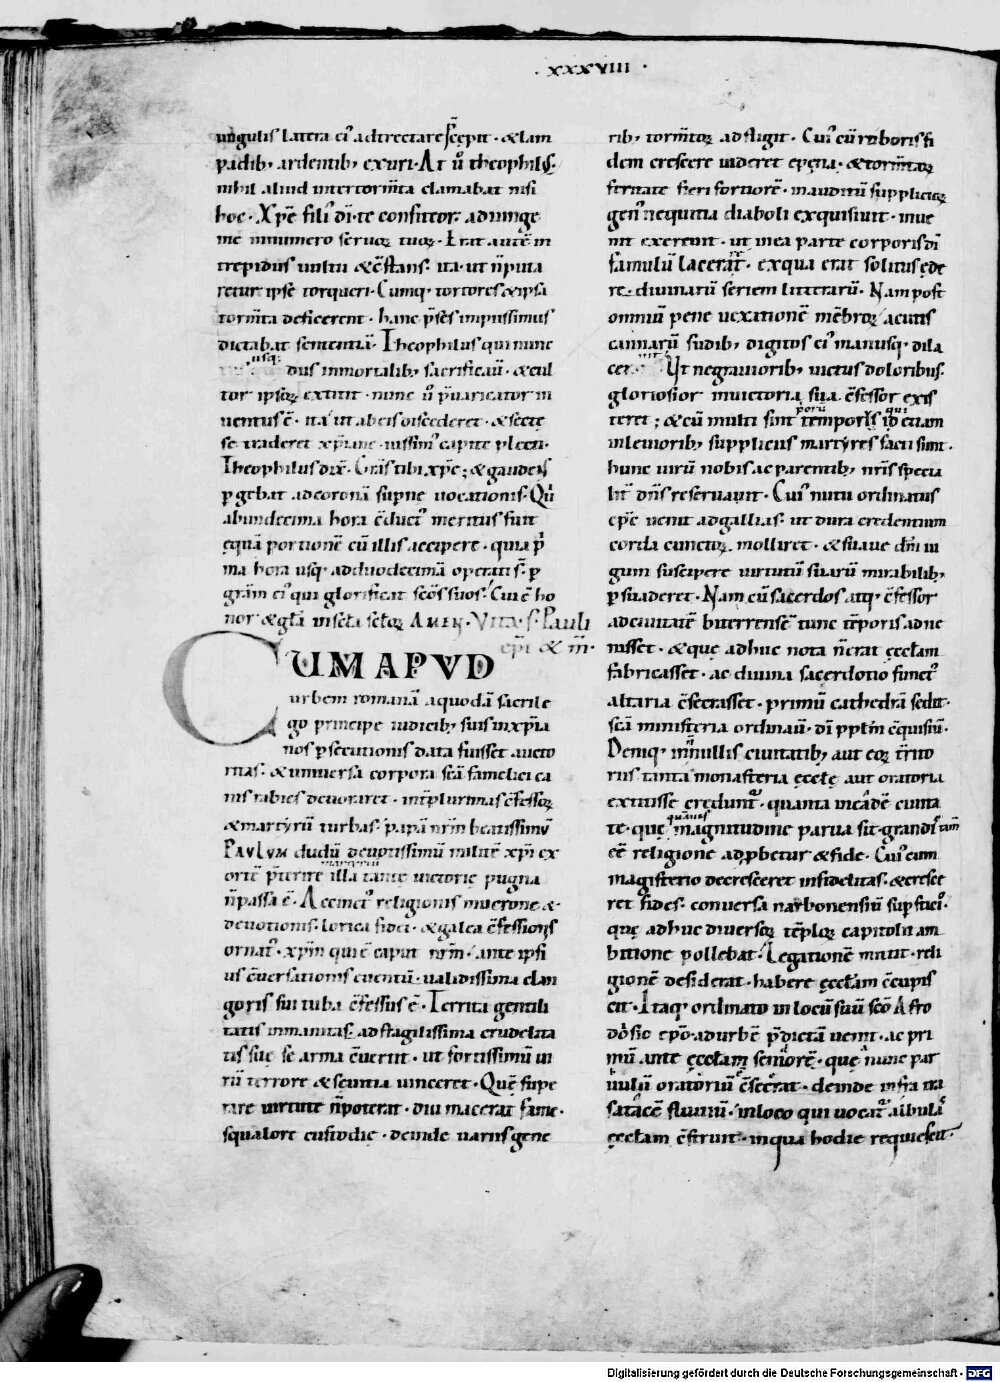 · XXXVIII ·
ungulis latera ei' adtrectare p̄cepit · & lam
padib; ardentib; exuri · At ū theophil'
nihil aliud inter torm̄ta clamabat nisi
hoc · Xp̄e fili' dī te confiteor · adiunge
me innumero seruoꝝ tuoꝝ · Erat autē in
trepidus uultu & c̄stans · ita · ut n̄ puta
retur ipse torqueri · Cumq; tortores & ipsa
torm̄ta deficerent · hanc p̄ses impiissimus
dictabat sententiā · Theophilus qui nunc
usq;
dīis inmortalib; sacrificauit · & cul
tor ipsoꝝ extitit · nunc ū p̄uaricator in
uentus ē · ita ut ab eis discederet · & secte
se traderet xp̄iane · iussim' capite plecti ·
Theophilus dix̄ · Grās tibi xp̄e ; & gaudens
pgebat ad coronā supne uocationis · Qui
ab undecima hora c̄duct' meritus fuit
ęquā portionē cū illis accipere · quia p̄
ma hora usq; ad duodecimā operati s̄ · p
grām ei' qui glorificat scōs suos · Cui ē ho
nor & glā in scła scłoꝝ AMEN · VITA · S · Pauli
ep̄i & m̄ ·
CUM APVD
urbem romanā a quodā sacrile
go principe iudicib; suis in xp̄ia
nos psecutionis data fuisset aucto
ritas · & uniuersa corpora scā famelici ca
nis rabies deuoraret · int̄ plurimas c̄fessoꝝ
& martyrū turbas · papā nr̄m beatissimū
PAVLVM dudū deuotissimū militē xp̄i ex
martyriū
ortē p̄terire illa tante uictorie pugna
n̄ passa ē · Accinct' religionis mucrone &
deuotionis · lorica fidei · & galea c̄fessionis
ornat' · xp̄m qui ē caput nr̄m · ante ipsi
us c̄uersationis euentū · ualidissima clan
goris sui tuba c̄fessus ē · Territa gentili
tatis inmanitas · ad flagilissima crudelita
tis suę se arma c̄uertit · ut fortissimū ui
rū terrore & seuitia uinceret · Quē supe
rare uirtute n̄ poterat · diu macerat fame ·
squalore custodię · deinde uariis gene
rib; torm̄toꝝ adfligit · Cui' cū roboris fi
dem crescere uideret epęna · & torm̄toꝝ
feritate fieri fortiorē · inauditū supplicioꝝ
gen' nequitia diaboli exquisiuit · inue
nit exercuit · ut in ea parte corporis dī
famulū lacerar̄t · ex qua erat solitus ęde
re · diuinarū seriem litterarū · Nam post
omniū pene uexationē mēbroꝝ acutis
cannarū sudib; digitos ei' manusq; dila
cer · Ut ne grauiorib; uictus doloribus ·
gloriosior inuictoria sua c̄fessor exis
teret ; & cū multi sint temporis id etiam
in leuiorib; suppliciis martyres facti sunt ·
hunc uirū nobis ac parentib; nr̄is specia
lit̄ dn̄s reseruauit · Cui' nutu ordinatus
ep̄c uenit ad gallias · ut dura credentium
corda cunctoꝝ molliret · & suaue dn̄i iu
gum suscipere uirtutū suarū mirabilib;
psuaderet · Nam cū sacerdos atq; c̄fessor
ad ciuitatē biterrensē tunc tēporis adue
nisset · & quę adhuc nota n̄ erat ęcclam
fabricasset · ac diuina sacerdotio funct'
altaria c̄secrasset · primū cathedrā sedit ·
scā ministeria ordinauit · dī pptm̄ c̄quisiuit ·
Deniq; in nullis ciuitatib; aut eoꝝ t̄rito
riis tanta monasteria ęcclę aut oratoria
extitisse creduntʳ · quanta in eadē ciuita
quāuis
te · que magnitudine parua sit · grandi tam
ēe religione adpbetur & fide · Cui' cum
magisterio decresceret infidelitas · & cresce
ret fides · conuersa narbonensiū supsticio ·
quę adhuc diuersoꝝ tēploꝝ capitolii am
bitione pollebat · Legationē mittit · reli
gionē desiderat · habere ęcclam c̄cupis
cit · Itaq; ordinato in locū suū scō Afro
dosio epō · ad urbē p̄dictā uenit · ac pri
mū ante ęcclam seniorē · quę nunc par
uulū oratoriū c̄secrat · deinde infra tra
satacē fluuiū · in loco qui uocat' ad albulā
ęcclam c̄struit · in qua hodie requiescit ·
Digitalisierung gefördert durch die Deutsche Forschungsgemeinschaft - DFG